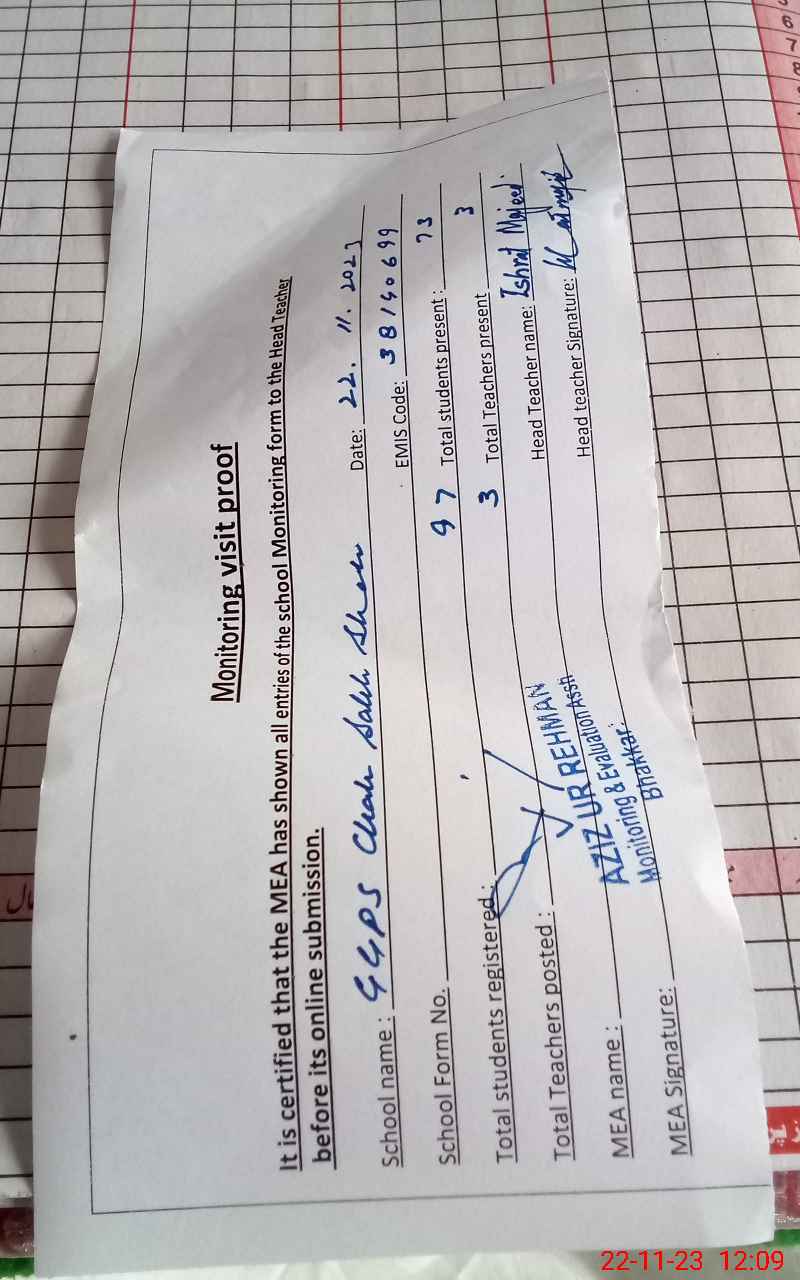 Monitoring visit proof
It is certified that the MEA has shown all entries of the school Monitoring form to the Head Teacher
before its online submission.
School name : GGPS Chah Saleh Shah Date: 22. 11. 2023
School Form No. EMIS Code: 38140699
Total students registered : 97 Total students present : 73
Total Teachers posted : 3 Total Teachers present 3
MEA name : AZIZ UR REHMAN Head Teacher name: Ishrat Majeed
Monitoring & Evaluation Asstt
Bhakkar.
MEA Signature: Head teacher Signature:
22-11-23 12:09